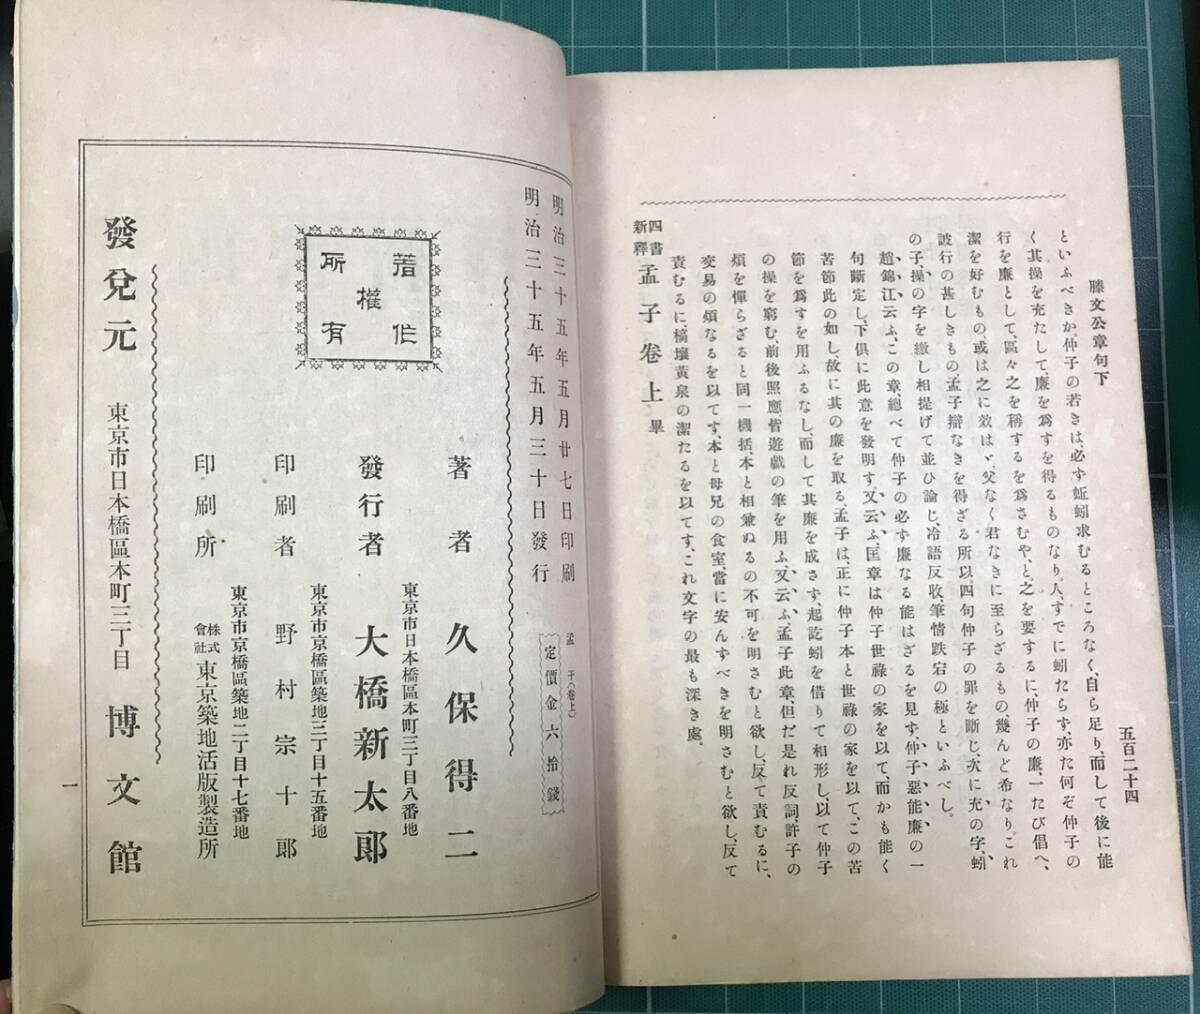 滕文公章句下
五百二十四
といふべきか、仲子の若きは、必ず蚯蚓求むるところなく、自ら足り、而して後に能
く其操を充たして、廉を爲すを得るものなり、人、すでに蚓たらず、亦た何ぞ仲子の
行を廉として、區々之を稱するを爲さむや、と之を要するに、仲子の廉、一たび倡へ、
潔を好むもの、或は之に效はゞ、父なく君なきに至らざるもの幾んど希なり、これ
詖行の甚しきもの、孟子辯なきを得ざる所以、四句仲子の罪を斷じ、次に充の字、蚓
の子、操の字を繳し相提げて並ひ論じ、冷語反收、筆情跌宕の極といふべし。
趙錦江云ふ、この章、總べて仲子の必ず廉なる能はざるを見す、仲子惡能廉の一
句斷定し、下俱に此意を發明す、又云ふ、匡章は仲子世祿の家を以て、而かも能く
苦節此の如し、故に其の廉を取る、孟子は、正に仲子本と世祿の家を以て、この苦
節を爲すを用ふるなし、而して其廉を成さず、起訖蚓を借りて相形し、以て仲子
の操を窮む、前後照應、皆遊戲の筆を用ふ、又云ふ、孟子此章、但だ是れ反詞、許子の
煩を憚らざると同一機括、本と相兼ぬるの不可を明さむと欲し、反て責むるに、
交易の煩なるを以てす、本と母兄の食室、當に安んずべきを明さむと欲し、反て
責むるに、槁壤黃泉の潔たるを以てす、これ文字の最も深き處。
四書新釋 孟子卷上 畢
明治三十五年五月廿七日印刷
明治三十五年五月三十日發行
孟子(卷上)
定價金六拾錢
著作權所有
著者 久保得二
東京市日本橋區本町三丁目八番地
發行者 大橋新太郎
東京市京橋區築地三丁目十五番地
印刷者 野村宗十郎
東京市京橋區築地二丁目十七番地
印刷所 株式會社 東京築地活版製造所
發兌元 東京市日本橋區本町三丁目 博文館
一